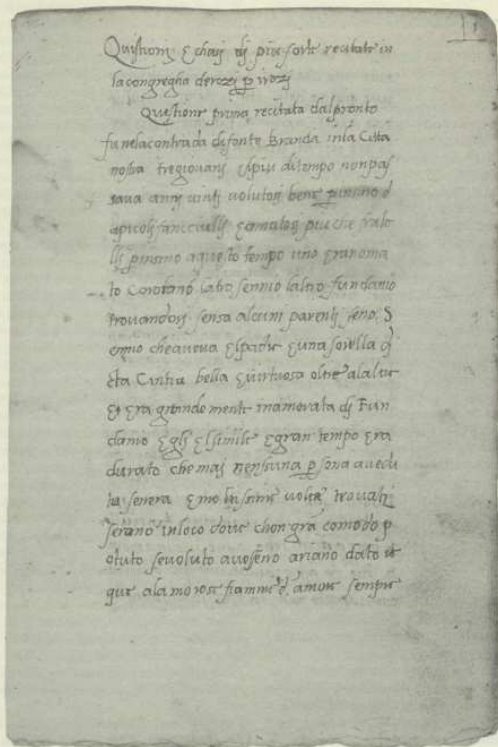 Quistioni e chasi di piu sorte recitate in
la congregha de rozzi p i rozzi
Questione prima recitata dal pronto
fu ne la contrada di fonte Branda in la Citta
nostra tre giovani e l piu di tempo non pas
sava anni vinti volutosi bene p insino d
a picoli fanciulli e amatosi piu che frate
lli p insino a questo tempo uno era noma
to Corebano latro sennio laltro fundanio
trovandosi sensa alcuni parenti seno S
ennio che aveva el padre e una sorella d
etta Cintia bella e virtuosa oltre a la lus
era grandemente inamorata di Fun
danio e gli el simile e gran tempo era
durato che mai nensuna p sona avedu
ta senera e moltissime volte trovati
serano in loco dove chon gra comodo p
otuto se voluto avesseno ariano dato
que a lamorose fiamme d amore sempre